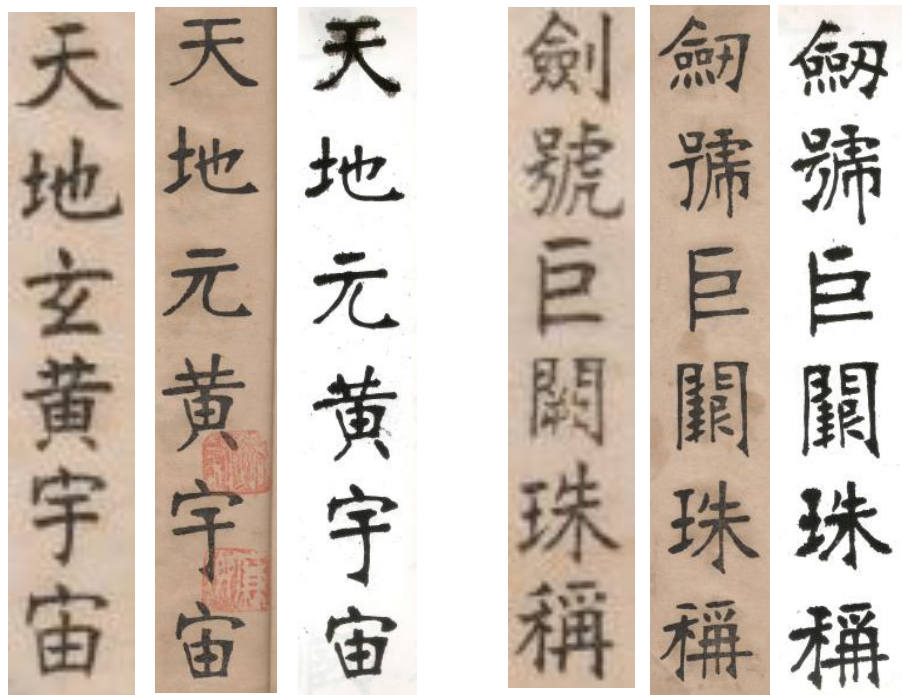 天地玄黄宇宙
天地元黄宇宙
天地元黄宇宙
劍號巨闕珠稱
劒號巨闕珠稱
劒號巨闕珠稱